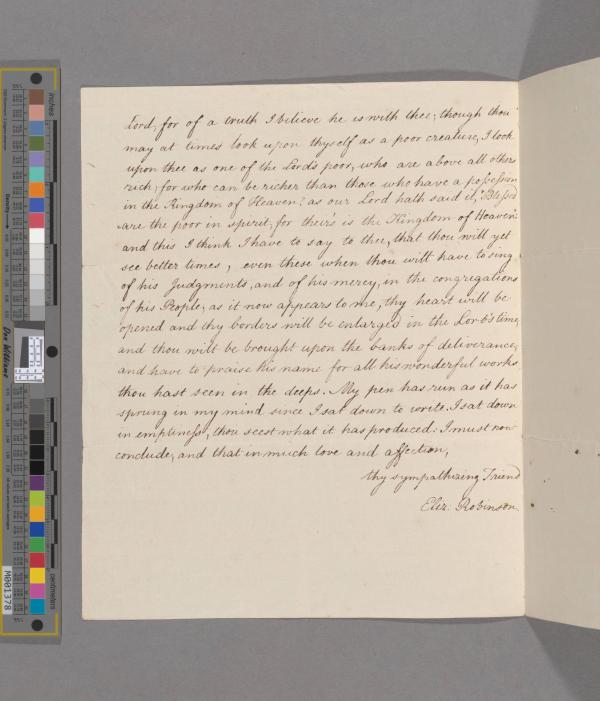 Lord, for of a truth I believe he is with thee; though thou
may at times look upon thyself as a poor creature, I look
upon thee as one of the Lord's poor, who are above all others
rich; for who can be richer than those who have a possession
in the Kingdom of Heaven? as our Lord hath said it, "Blessed
are the poor in spirit, for their's is the Kingdom of Heaven":
and this I think I have to say to thee, that thou will yet
see better times, even these when thou wilt have to sing
of his Judgments, and of his mercy, in the congregations
of his People; as it now appears to me, thy heart will be
opened and thy borders will be enlarged in the Lord's time,
and thou wilt be brought upon the banks of deliverance,
and have to praise his name for all his wonderful works
thou hast seen in the deeps. My pen has run as it has
sprung in my mind since I sat down to write. I sat down
in emptiness, thou seest what it has produced: I must now
conclude, and that in much love and affection,
thy sympathizing Friend
Eliz: Robinson.
inches
centimetres
Don Williams
M001378